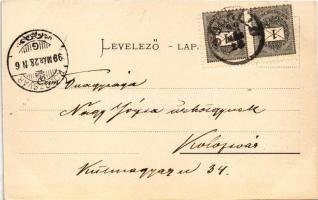 LEVELEZŐ - LAP.
99 MÁR. 28 N 6
Nagysága
Nagy Józsa úrhölgynek
Kolozsvár
Külmagyar u 34.